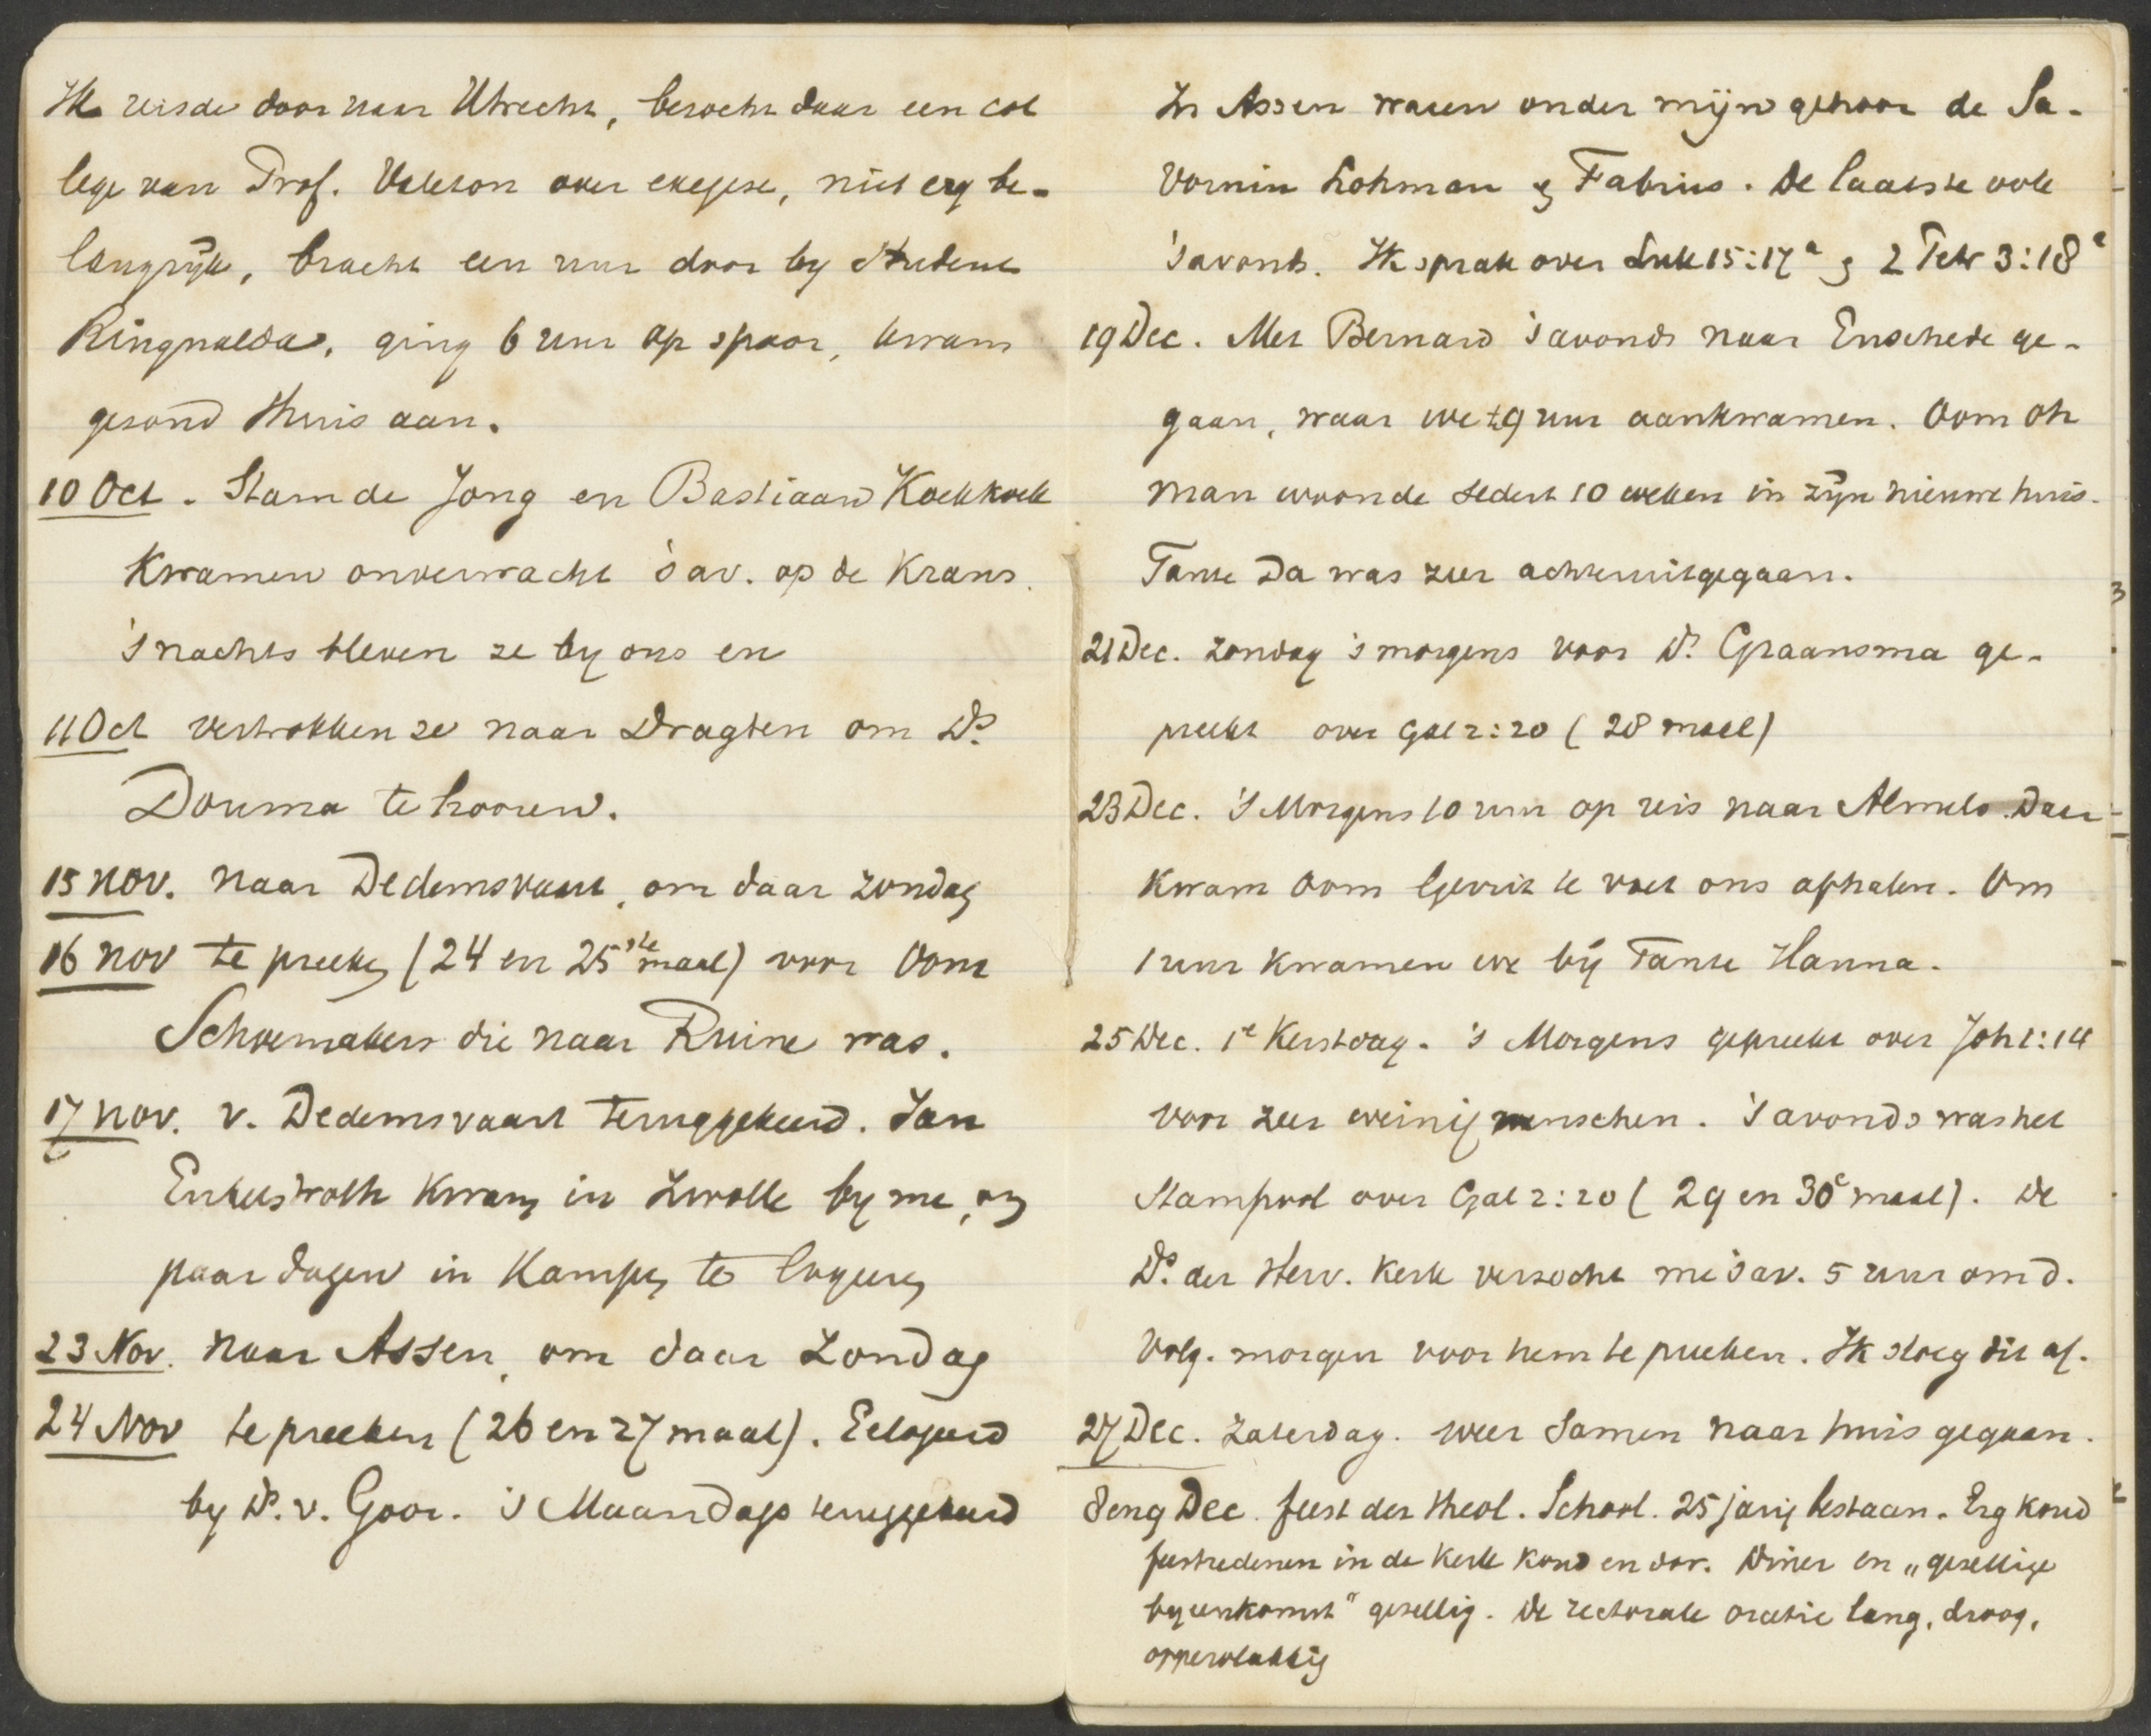 Ik reisde door naar Utrecht, bezocht daar een col
lege van Prof. Valeton over exegese, niet erg be-
langrijk, bracht een uur door by student
Ringnalda, ging 6 uur op spoor, kwam
gezond thuis aan.
10 Oct. Stam de Jong en Bastiaan Koekkoek
kwamen onverwacht 's av. op de Krans.
's nachts bleven ze by ons en
11 Oct vertrokken ze naar Dragten om Ds.
Douma te hooren.
15 nov. naar Dedemsvaart, om daar zondag
16 nov te preeken (24 en 25ste maal) voor Oom
Schoemakers die naar Ruine was.
17 nov. v. Dedemsvaart teruggekeerd. Jan
kwam in Zwolle by me, om
paar dagen in Kampen te logeeren
23 Nov. naar Assen, om daar Zondag
24 Nov te preeken (26 en 27 maal). Gelogeerd
by Ds. v. Goor. 's Maandags teruggekeerd
In Assen waren onder mijn gehoor de Sa-
vornin Lohman & Fabius. De laatste ook
's avonds. Ik sprak over Luk 15:17a & 2 Petr 3:18a
19 Dec. Met Bernard 's avonds naar Enschede ge-
gaan, waar we ±9 uur aankwamen. Oom Oh
man woonde sedert 10 weken in zijn nieuwe huis.
Tante Da was zeer achteruitgegaan.
21 Dec. Zondag 's morgens voor Ds. Graansma ge-
preekt over Gal 2:20 (28 maal)
23 Dec. 's Morgens 10 uur op reis naar Almelo. Daar
kwam Oom Gerrit te voet ons afhalen. Om
1 uur kwamen we bij Tante Hanna.
25 Dec. 1e Kerstdag. 's Morgens gepreekt over Joh 1:14
voor zeer weinig menschen. 's avonds was het
stampvol over Gal 2:20 (29 en 30e maal). De
Ds. der Herv. Kerk verzocht me 's av. 5 uur om d.
volg. morgen voor hem te preeken. Ik sloeg dit af.
27 Dec. Zaterdag. weer samen naar huis gegaan.
8 en 9 Dec. feest der Theol. School. 25 jarig bestaan. Erg koud
feestredenen in de kerk koud en dor. Diner en „gezellige
byeenkomst" gezellig. De rectorale oratie lang, droog,
oppervlakkig